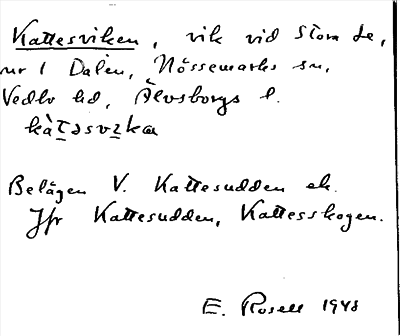 Kattesviken, vik vid Stora Le,
nr 1 Dalen, Nössemarks sn,
Vedbo hd, Älvsborgs l.
kàt̲əsvɪ̲ka
Belägen V. Kattesudden ek.
Jfr Kattesudden, Kattesskogen.
E. Rosell 1948